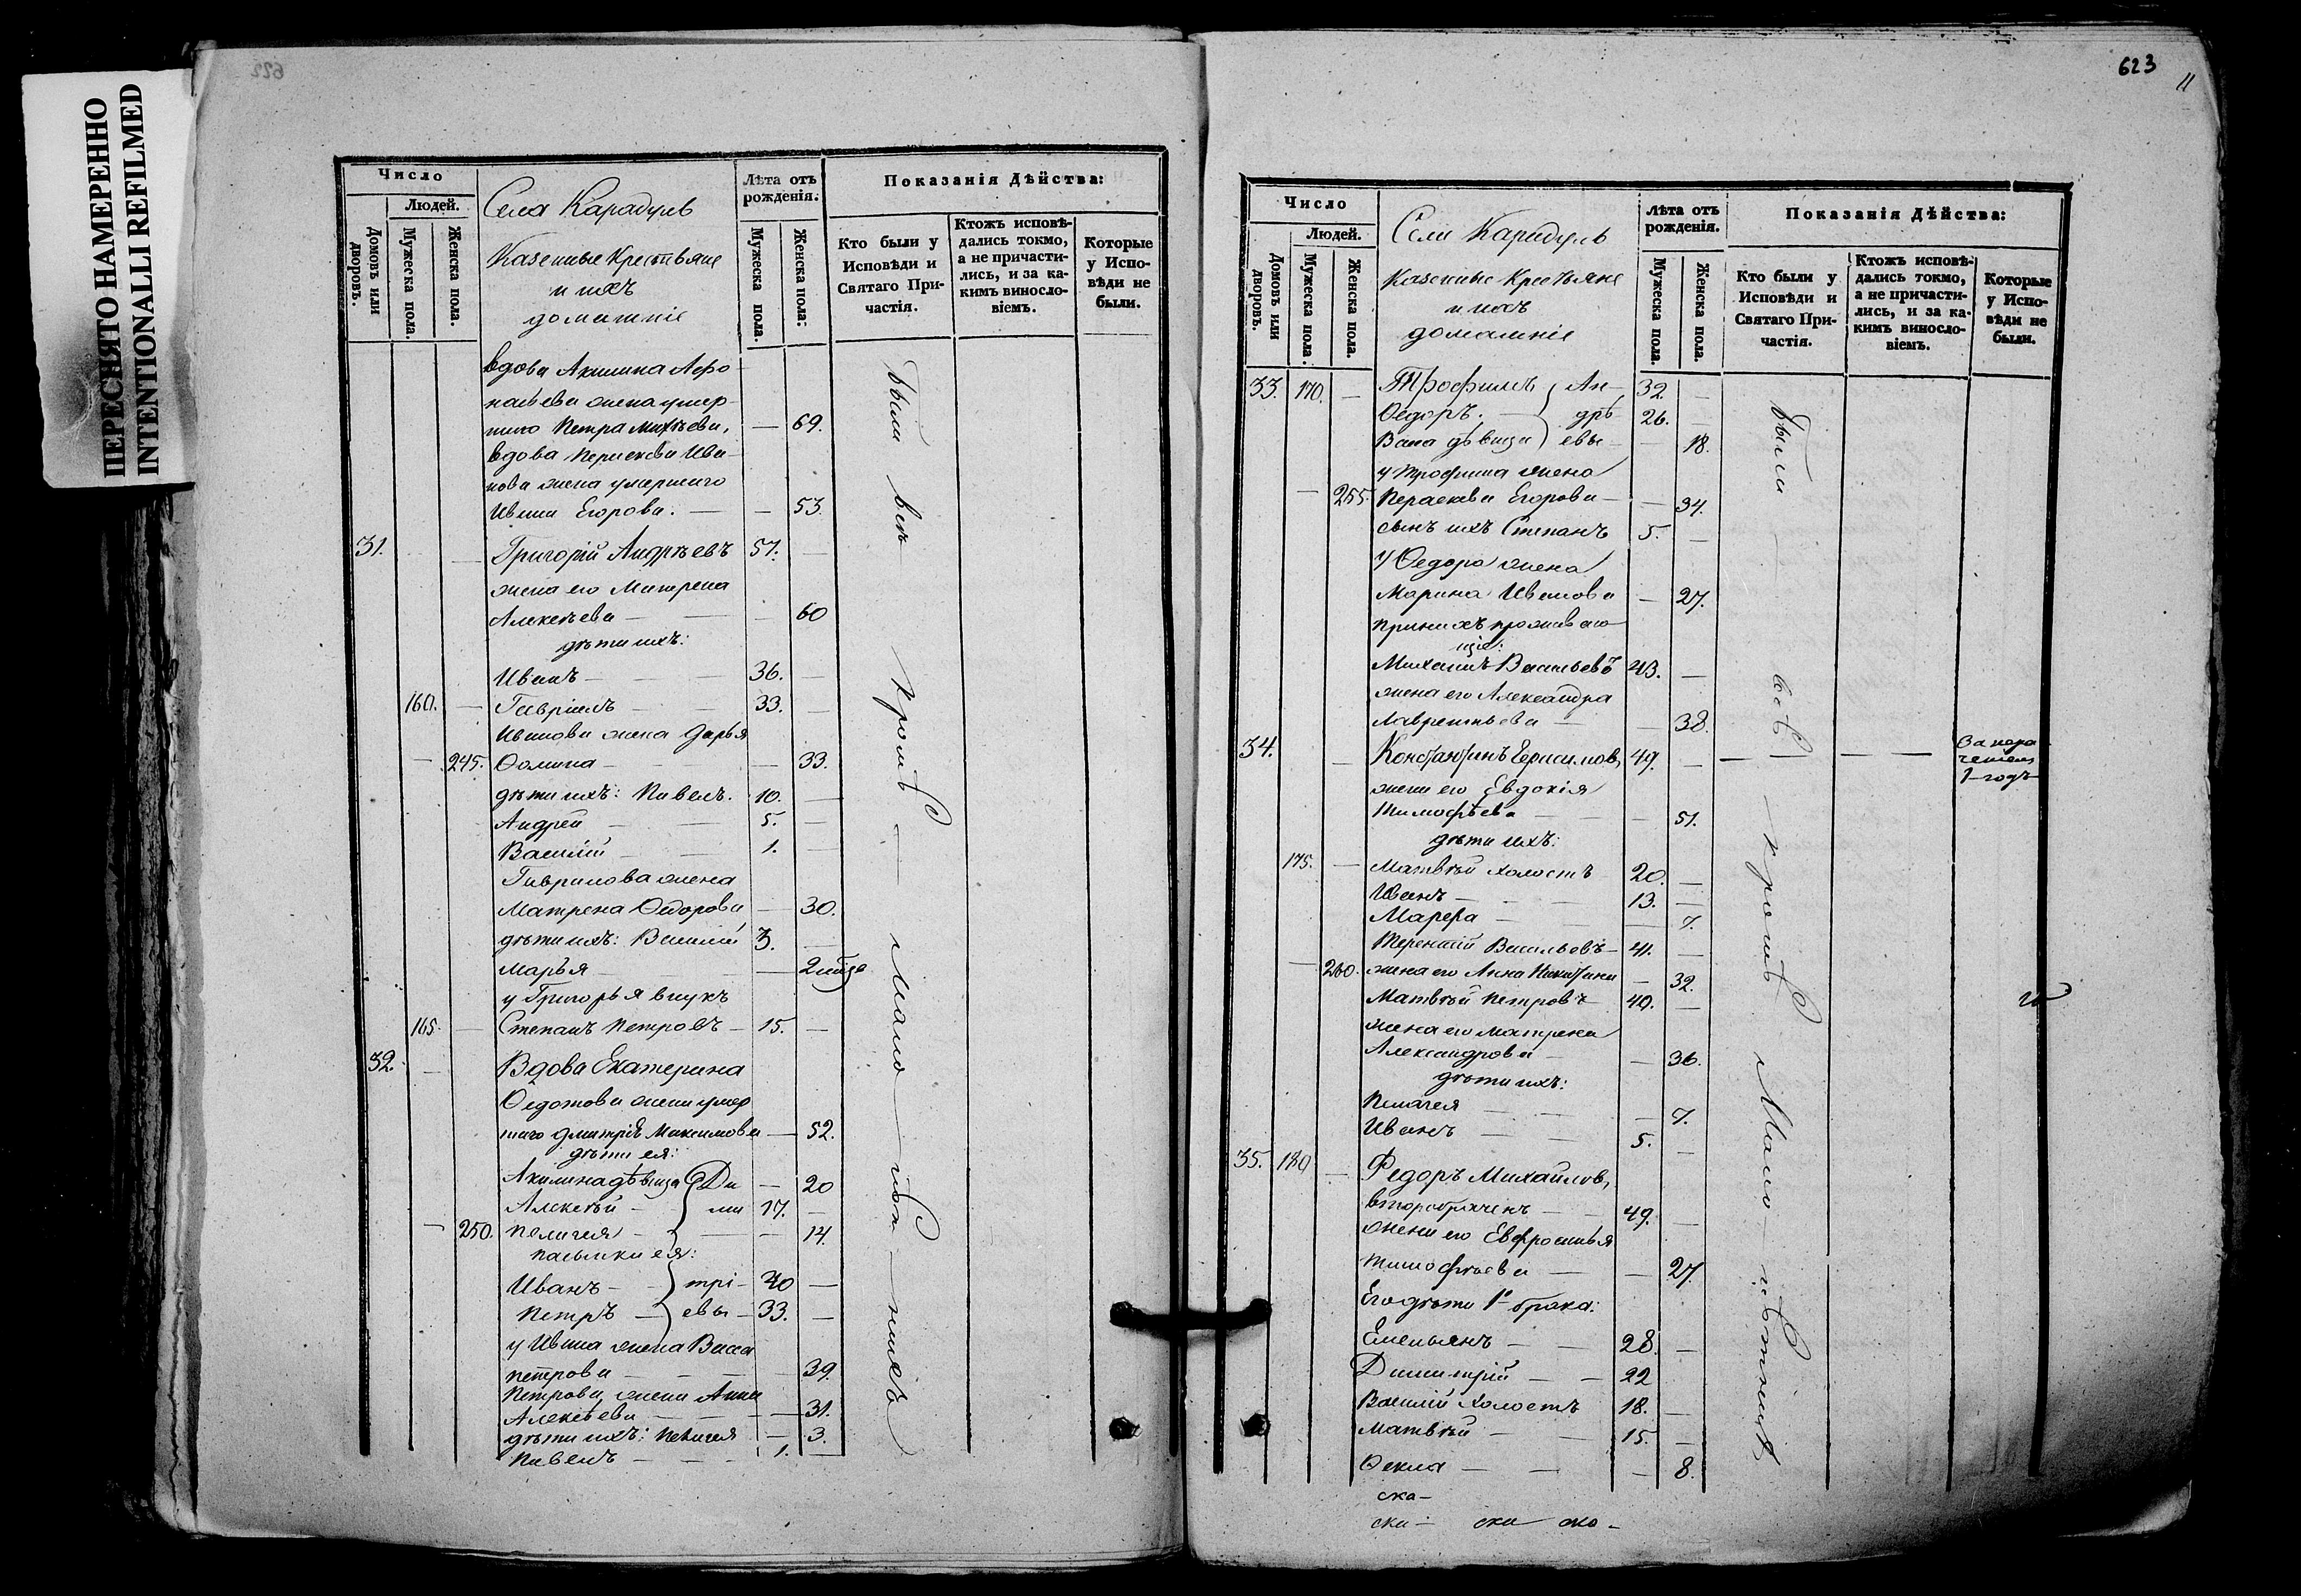 ПЕРЕСНЯТО НАМЕРЕННО
INTENTIONALLI REFILMED
622
Число
Людей.
Домовъ или дворовъ.
Мужеска пола.
Женска пола.
Села Карадуль
Казенные Крестьяне
и ихъ
домашніе
Лѣта отъ рожденія.
Мужеска пола.
Женска пола:
Показанія Дѣйства:
Кто были у Исповѣди и Святаго Причастія.
Ктожъ исповѣдались токмо, а не причастились, и за какимъ винословіемъ.
Которые у Исповѣди не были.
вдова Акилина Афо
насьева жена умер
шаго Петра Михѣева, — 69.
вдова Параскева Ива
нова жена умершаго
Ивана Егорова. — — 53.
31. — Григорій Андрѣевъ 57. —
жена его Матрена
Алексѣева — — 60
дѣти ихъ:
Иванъ — — 36. —
160. — Гавріилъ — — 33. —
Иванова жена Дарья
— 245. Фомина — — 33.
дѣти ихъ: Павелъ. 10. —
Андрей — — 5. —
Василій — — 1. —
Гаврилова жена
Матрена Федорова — 30.
дѣти ихъ: Василій 3. —
Марья — — 2
у Григорья внукъ
165. — Степанъ Петровъ — 15. —
32. — Вдова Екатерина
Федотова жена умер
шаго Дмитрія Максимова — 52.
дѣти ея:
Акилина дѣвица Ди — 20
Алексѣй — ми 17. —
— 250. Пелагея — — — 14.
пасынки ея:
Иванъ — трі — 40 —
Петръ — евы — 33. —
у Ивана жена Васса
Петрова — — 39.
Петрова жена Анна
Алексѣева — — — 31.
дѣти ихъ: Пелагея — 3.
Павелъ — — — 1. —
были всѣ кромѣ — мало
623
11
Число
Людей.
Домовъ или дворовъ.
Мужеска пола.
Женска пола.
Села Карадуль
Казенные Крестьяне
и ихъ
домашніе
Лѣта отъ рожденія.
Мужеска пола.
Женска пола.
Показанія Дѣйства:
Кто были у Исповѣди и Святаго Причастія.
Ктожъ исповѣдались токмо, а не причастились, и за какимъ винословіемъ.
Которые у Исповѣди не были.
33. 170. — Трофимъ Ан— 32. —
Федоръ. — дрѣ 26. —
Васа дѣвица евы — 18.
у Трофима жена
— 255. Параскева Егорова — — 34.
сынъ ихъ Степанъ 5. —
у Федора жена
Марина Иванова — 27.
при нихъ проживаю
щіе:
Михаилъ Васильевъ 43. —
жена его Александра
Лаврентьева — — 38.
34. — Константинъ Герасимовъ, 49. — — — — За нера
чениемъ
1 годъ
жена его Евдокія
Тимофѣева — — — 51.
дѣти ихъ:
175. — Матвѣй холостъ 20. —
Иванъ — — — 13. —
Марфа — — — 7.
Терентій Васильевъ — 41. —
— 260. жена его Анна Никитина — 32.
Матвѣй Петровъ — 40. —
жена его Матрена
Александрова — — 36.
дѣти ихъ:
Пелагея — — — 7.
Иванъ — — 5. —
35. 180 — Федоръ Михайловъ,
второбраченъ — — 49. —
жена его Евфросинья
Тимофѣева — — 27.
Его дѣти 1го брака:
Емельянъ — — 28. —
Димитрій — — 22
Василій холостъ 18. —
Матвѣй — — 15. —
Фекла — — — 8.
были — всѣ кромѣ Мало
ска—
ска— ска ско—